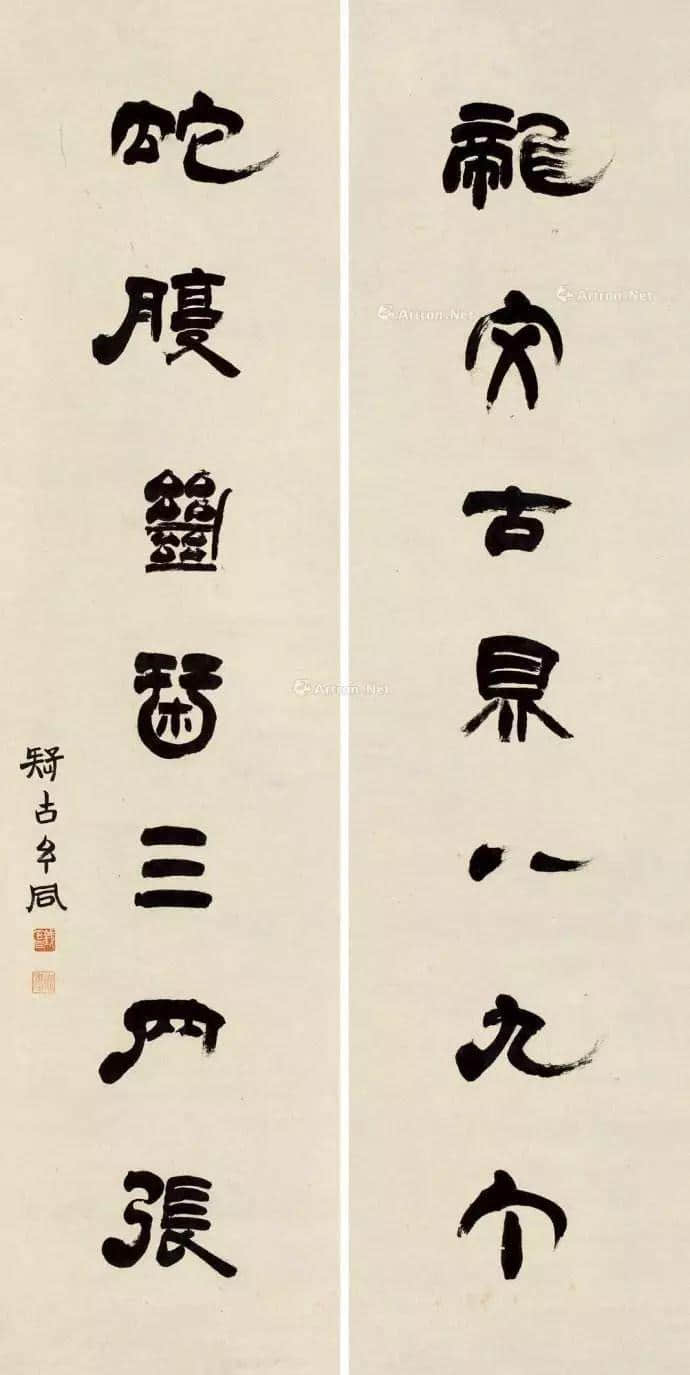 龍文古鼎八九个
蛇腹斷琴三四張
疑古玄同
Artron.Net
Artron.Net
Artron.Net